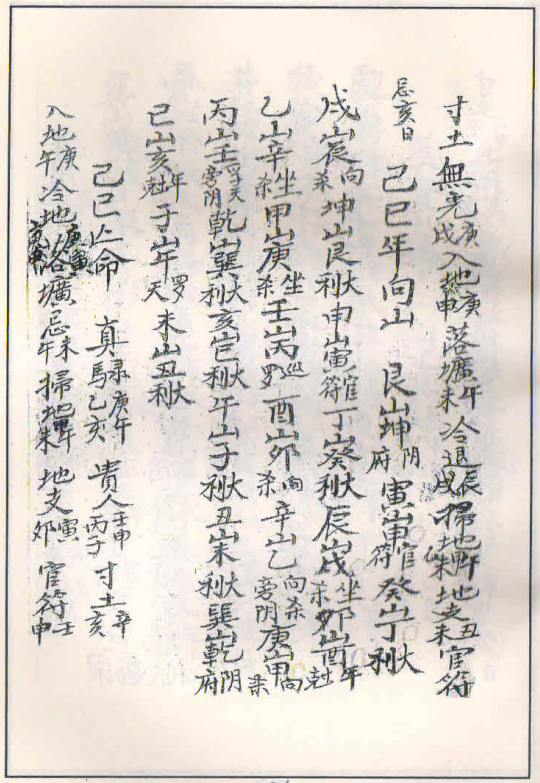 寸土無光庚戌入地庚申落壙午未冷退辰戌掃地午未地支丑未官符
忌亥日 己巳年向山 艮山坤阴府 寅山申官符 癸山丁大利
戌山辰向杀坤山艮大利申山寅官符丁山癸大利辰山戌坐杀卯山酉年尅
乙山辛坐杀甲山庚坐杀壬山丙巡罗酉山卯向杀辛山乙向杀旁阴庚山甲向杀
丙山壬浮天旁阴乾山巽大利亥山巳大利午山子大利丑山未大利巽山乾阴府
巳山亥年尅子山午罗天未山丑大利
己巳亡命 真禄庚午馬乙亥 貴人壬申丙子 寸土辛亥
入地庚午冷地落壙忌未午掃地未地支寅卯官符壬申